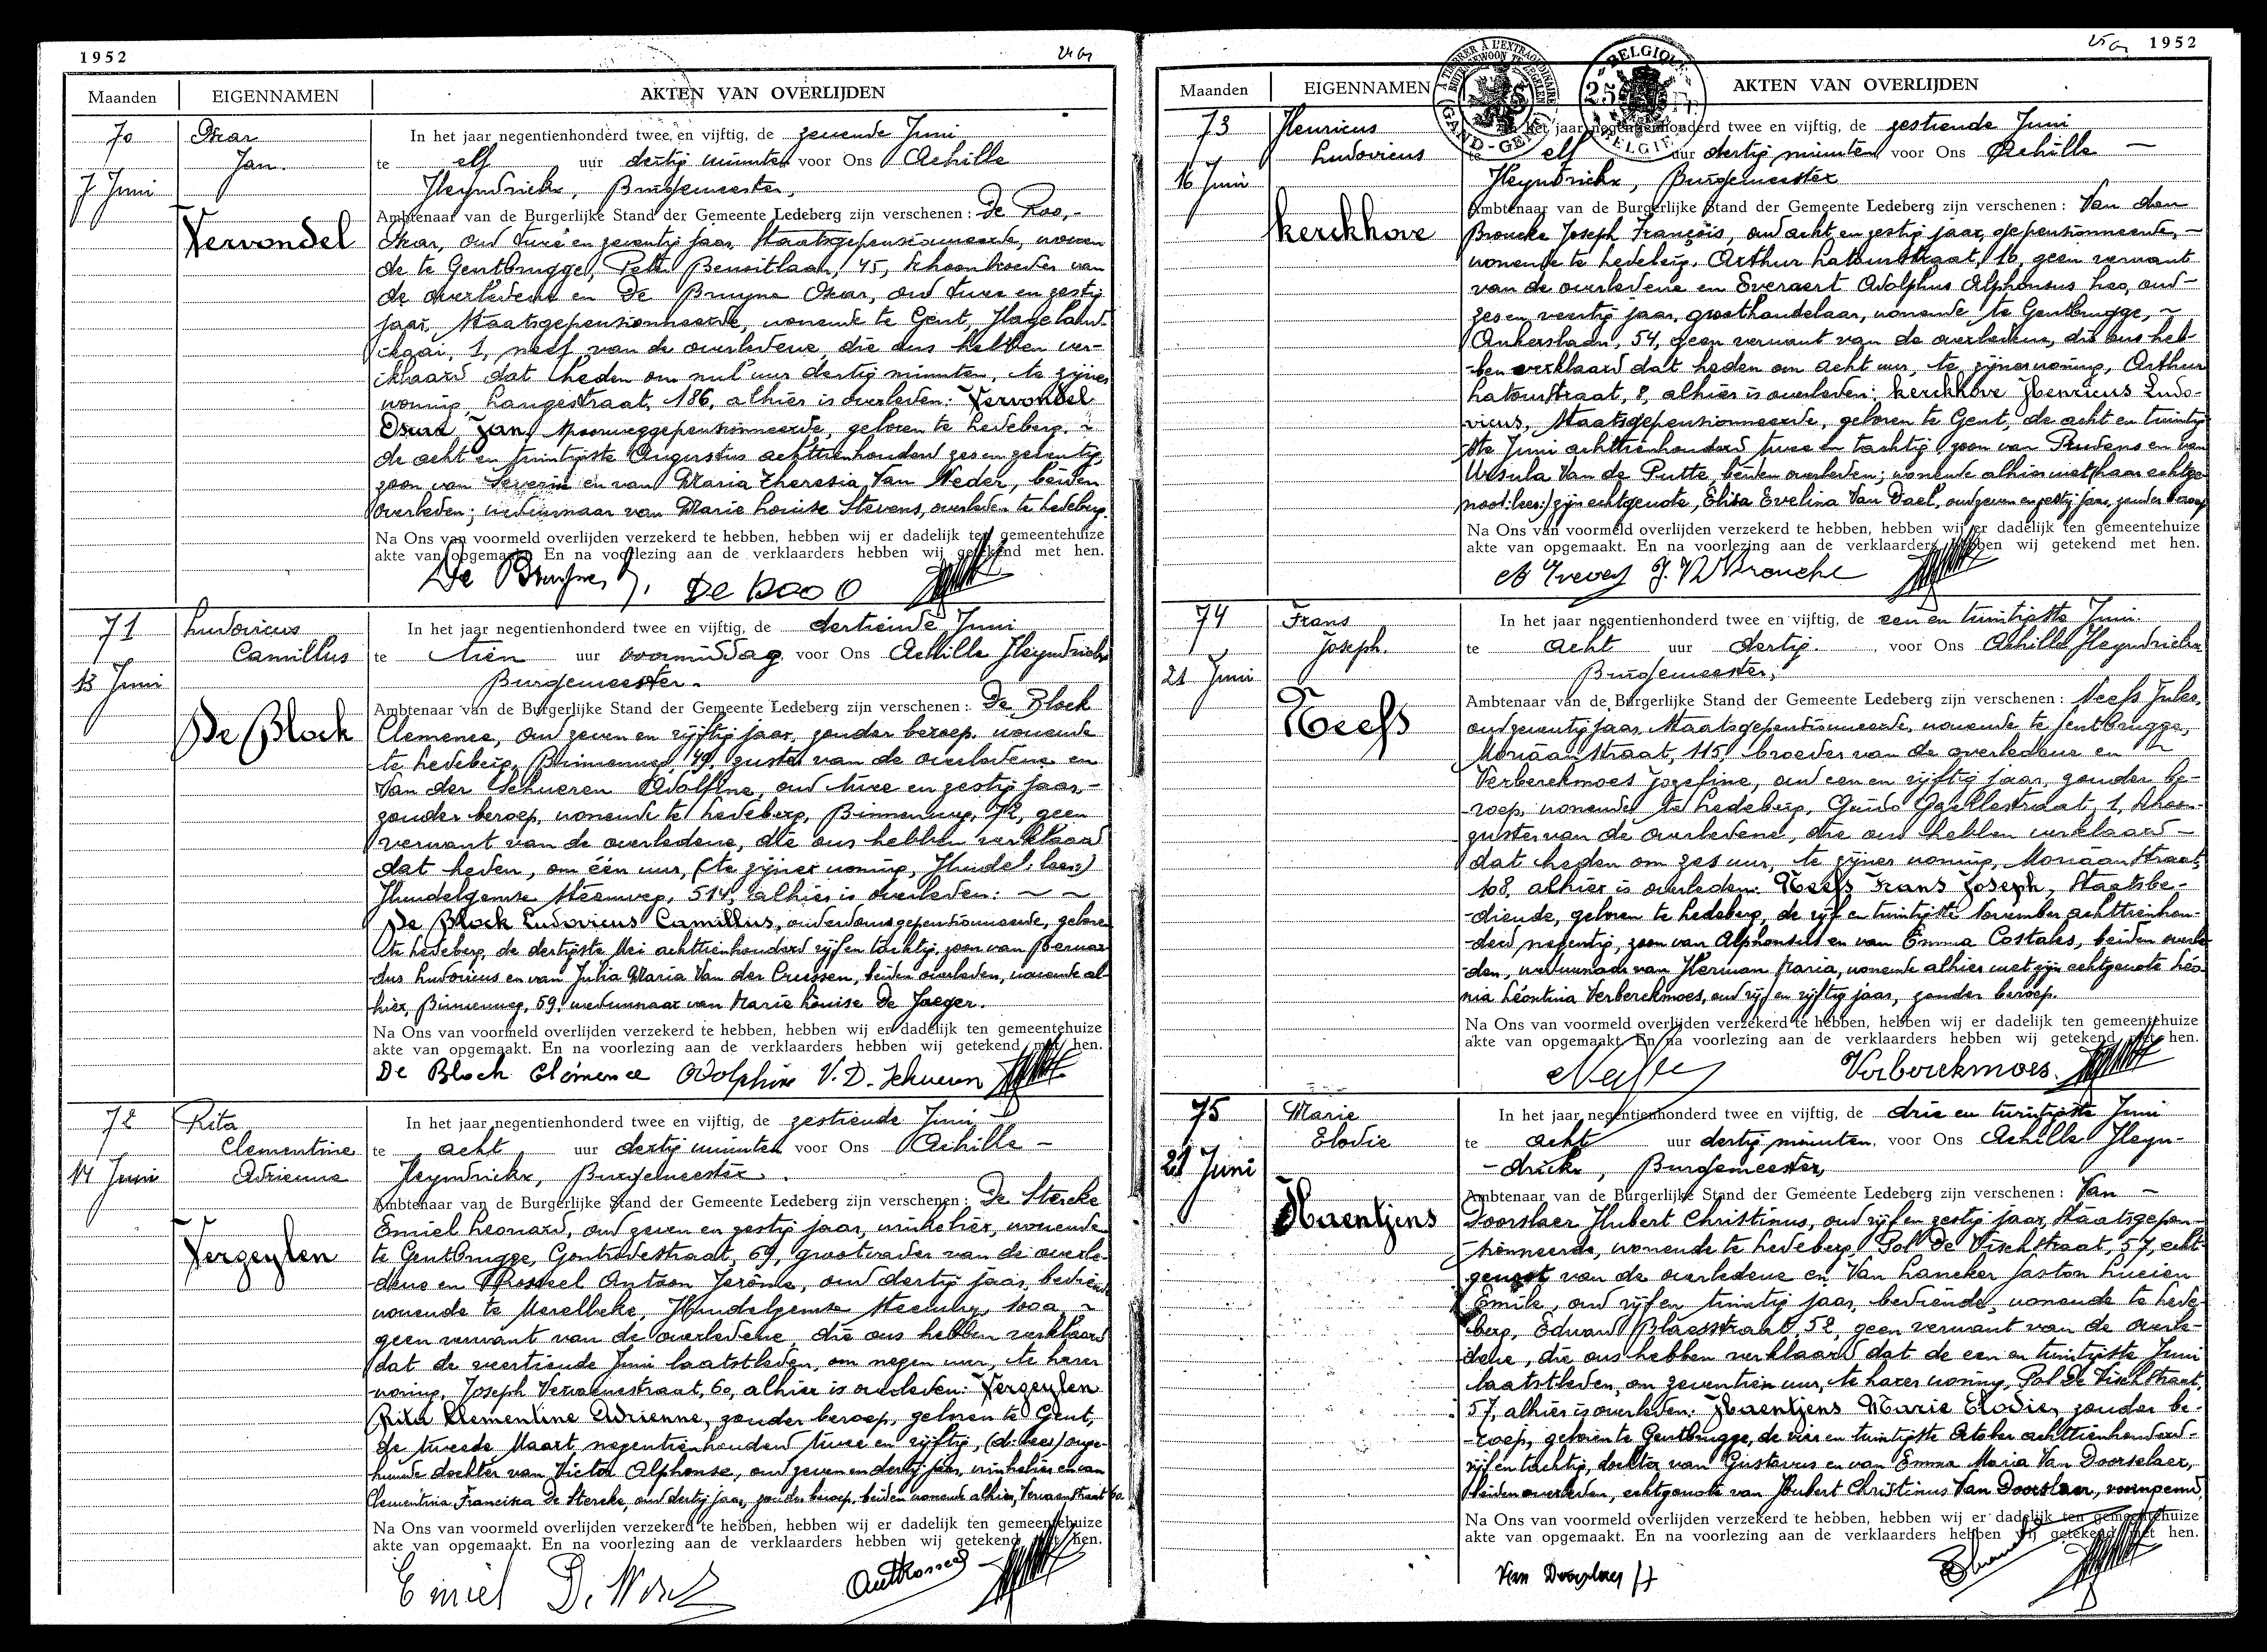 1952
Maanden EIGENNAMEN AKTEN VAN OVERLIJDEN
70
7 Juni
Oskar
Jan.
Vervondel
In het jaar negentienhonderd twee en vijftig, de zevende Juni
te elf uur dertig minuten voor Ons Achille
Heyndrickx, Burgemeester,
Ambtenaar van de Burgerlijke Stand der Gemeente Ledeberg zijn verschenen: De Roo,-
Oskar, oud twee en zeventig jaar, Staatsgepensionneerde, wonen
de te Gentbrugge, Peter Benoitlaan, 45, schoonbroeder van
de overledene en De Bruyne Oskar, oud twee en zestig
jaar, Staatsgepensionneerde, wonende te Gent, Hageland-
kaai, 1, neef van de overledene, die ons hebben ver-
klaard dat heden om nul uur dertig minuten, te zijner
woning, Langestraat, 186, alhier is overleden: Vervondel
Oskar Jan, spoorweggepensionneerde, geboren te Ledeberg, ~
de acht en twintigste Augustus achttienhonderd zes en zeventig,
zoon van Severin en van Maria Theresia Van Neder, beiden
overleden; weduwnaar van Marie Louise Stevens, overleden te Ledeberg.
Na Ons van voormeld overlijden verzekerd te hebben, hebben wij er dadelijk ten gemeentehuize
akte van opgemaakt. En na voorlezing aan de verklaarders hebben wij getekend met hen.
De Bruyne, O. De Roo O
71
13 Juni
Ludovicus
Camillus
De Block
In het jaar negentienhonderd twee en vijftig, de dertiende Juni
te tien uur voormiddag voor Ons Achille Heyndrickx
Burgemeester.
Ambtenaar van de Burgerlijke Stand der Gemeente Ledeberg zijn verschenen: De Block
Clemence, oud zeven en vijftig jaar, zonder beroep, wonende
te Ledeberg, Binnenweg, 49, zuster van de overledene en
Van der Schueren Adolfine, oud twee en zestig jaar,-
zonder beroep, wonende te Ledeberg, Binnenweg, 72, geen
verwant van de overledene, die ons hebben verklaard
dat heden, om één uur, (te zijner woning, Hundel: lees:)
Hundelgemse steenweg, 514, alhier is overleden: ~ ~
De Block Ludovicus Camillus, ouderdomsgepensionneerde, geboren
te Ledeberg, de dertigste Mei achttienhonderd vijf en tachtig, zoon van Bernar-
dus Ludovicus en van Julia Maria Van der Cruyssen, beiden overleden, wonende al-
hier, Binnenweg, 59, weduwnaar van Marie Louise De Jaeger.
Na Ons van voormeld overlijden verzekerd te hebben, hebben wij er dadelijk ten gemeentehuize
akte van opgemaakt. En na voorlezing aan de verklaarders hebben wij getekend met hen.
De Block Clémence Adolphine V. D. Schueren
72
14 Juni
Rita
Clementine
Adrienne
Vergeylen
In het jaar negentienhonderd twee en vijftig, de zestiende Juni
te acht uur dertig minuten voor Ons Achille -
Heyndrickx, Burgemeester.
Ambtenaar van de Burgerlijke Stand der Gemeente Ledeberg zijn verschenen: De Stercke
Emiel Leonard, oud zeven en zestig jaar, winkelier, wonende
te Gentbrugge, Gontrodestraat, 69, grootvader van de overle-
dene en Rosseel Antoon Jerôme, oud dertig jaar, bediende
wonende te Merelbeke, Hundelgemse steenweg, 100a, ~
geen verwant van de overledene, die ons hebben verklaard
dat de veertiende Juni laatstleden, om negen uur, te harer
woning, Joseph Vervaenestraat, 60, alhier is overleden: Vergeylen
Rita Klementine Adrienne, zonder beroep, geboren te Gent,
de tweede Maart negentienhonderd twee en vijftig, (d: lees) onge-
huwde dochter van Victor Alphonse, oud zeven en dertig jaar, winkelier en van
Clementina Francisca De Stercke, oud dertig jaar, zonder beroep, beiden wonende alhier, Vervaenestraat 60.
Na Ons van voormeld overlijden verzekerd te hebben, hebben wij er dadelijk ten gemeentehuize
akte van opgemaakt. En na voorlezing aan de verklaarders hebben wij getekend met hen.
Emiel Ant Rosseel
1952
Maanden EIGENNAMEN AKTEN VAN OVERLIJDEN
BELGIQUE
GAND-GENT
BELGIE
73
16 Juni
Henricus
Ludovicus
Kerckhove
In het jaar negentienhonderd twee en vijftig, de zestiende Juni
te elf uur dertig minuten voor Ons Achille -
Heyndrickx, Burgemeester
Ambtenaar van de Burgerlijke Stand der Gemeente Ledeberg zijn verschenen: Van den
Broucke Joseph François, oud acht en zestig jaar, gepensionneerde, -
wonende te Ledeberg, Arthur Latourstraat, 16, geen verwant
van de overledene en Everaert Adolphus Alphonsus Leo, oud-
zes en veertig jaar, groothandelaar, wonende te Gentbrugge, ~
Ankerslaan, 54, geen verwant van de overledene, die ons heb-
-ben verklaard dat heden om acht uur, te zijner woning, Arthur
Latourstraat, 8, alhier is overleden: Kerckhove Henricus Ludo-
vicus, Staatsgepensionneerde, geboren te Gent, de acht en twintig-
ste Juni achttienhonderd twee en tachtig, zoon van Prudens en van
Ursula Van de Putte, beiden overleden; wonende alhier met (haar echtge-
noot: lees:) zijn echtgenote, Elisa Evelina Van Dael, oud zeven en zestig jaar, zonder beroep
Na Ons van voormeld overlijden verzekerd te hebben, hebben wij er dadelijk ten gemeentehuize
akte van opgemaakt. En na voorlezing aan de verklaarders hebben wij getekend met hen.
74
21 Juni
Frans
Joseph.
Neefs
In het jaar negentienhonderd twee en vijftig, de een en twintigste Juni
te acht uur dertig. voor Ons Achille Heyndrickx
Burgemeester,
Ambtenaar van de Burgerlijke Stand der Gemeente Ledeberg zijn verschenen: Neefs Jules,
oud zeventig jaar, Staatsgepensionneerde, wonende te Gentbrugge,
Moriaanstraat, 115, broeder van de overledene en
Verberckmoes Jozefine, oud een en vijftig jaar, zonder be-
-roep, wonende te Ledeberg, Guido Gezellestraat, 1, schoon-
zuster van de overledene, die ons hebben verklaard -
dat heden om zes uur, te zijner woning, Moriaanstraat,
108, alhier is overleden: Neefs Frans Joseph, Staatsbe-
-diende, geboren te Ledeberg, de vijf en twintigste November achttienhon-
-derd negentig, zoon van Alphonsus en van Emma Costales, beiden overle-
-den, weduwnaar van Herman Maria, wonende alhier met zijn echtgenote Léo-
nia Léontina Verberckmoes, oud vijf en vijftig jaar, zonder beroep.
Na Ons van voormeld overlijden verzekerd te hebben, hebben wij er dadelijk ten gemeentehuize
akte van opgemaakt. En na voorlezing aan de verklaarders hebben wij getekend met hen.
Verberckmoes.
75
21 Juni
Marie
Elodie
Haentjens
In het jaar negentienhonderd twee en vijftig, de drie en twintigste Juni
te acht uur dertig minuten, voor Ons Achille Heyn-
-drickx, Burgemeester,
Ambtenaar van de Burgerlijke Stand der Gemeente Ledeberg zijn verschenen: Van -
Doorslaer Hubert Christinus, oud vijf en zestig jaar, Staatsgepen-
sionneerde, wonende te Ledeberg, Pol De Vischstraat, 57, echt-
genoot van de overledene en Van Laneker Gaston Lucien
Emile, oud vijf en twintig jaar, bediende, wonende te Lede-
berg, Eduard Blaesstraat, 52, geen verwant van de overle-
dene, die ons hebben verklaard dat de een en twintigste Juni
laatstleden, om zeventien uur, te harer woning, Pol De Vischstraat,
57, alhier is overleden: Haentjens Marie Elodie, zonder be-
-roep, geboren te Gentbrugge, de vier en twintigste October achttienhonderd-
vijf en tachtig, dochter van Gustavus en van Emma Maria Van Doorselaer,
beiden overleden, echtgenote van Hubert Christinus Van Doorslaer, voornoemd.
Na Ons van voormeld overlijden verzekerd te hebben, hebben wij er dadelijk ten gemeentehuize
akte van opgemaakt. En na voorlezing aan de verklaarders hebben wij getekend met hen.
Van Doorslaer H